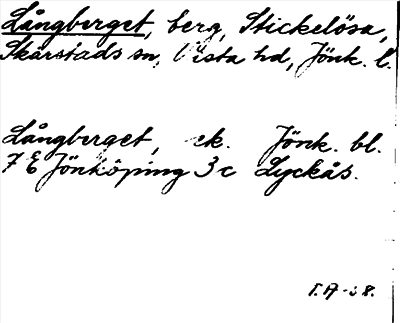 Långberget, berg, Stickelösa,
Skärstads sn, Vista hd, Jönk. l.
Långberget, ek. Jönk. bl.
7 E Jönköping 3 c Lyckås.